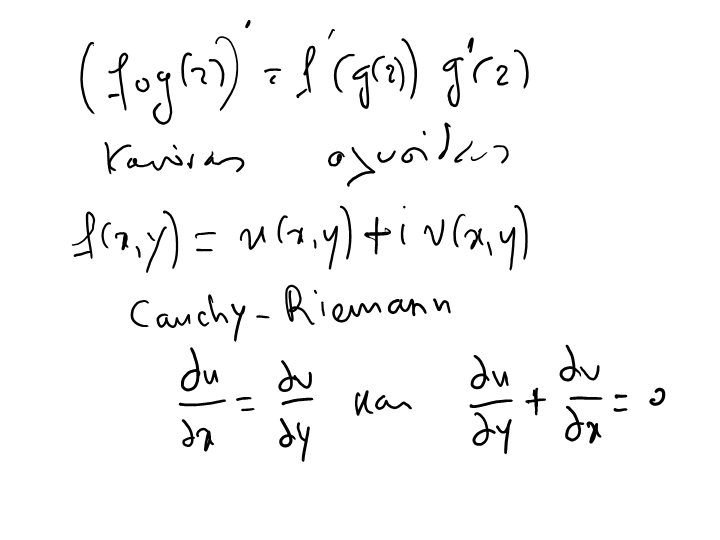 (f∘g(z))' = f'(g(z)) g'(z)
Κανόνας αλυσίδας
f(x,y) = u(x,y) + i v(x,y)
Cauchy-Riemann
∂u/∂x = ∂v/∂y και ∂u/∂y + ∂v/∂x = 0